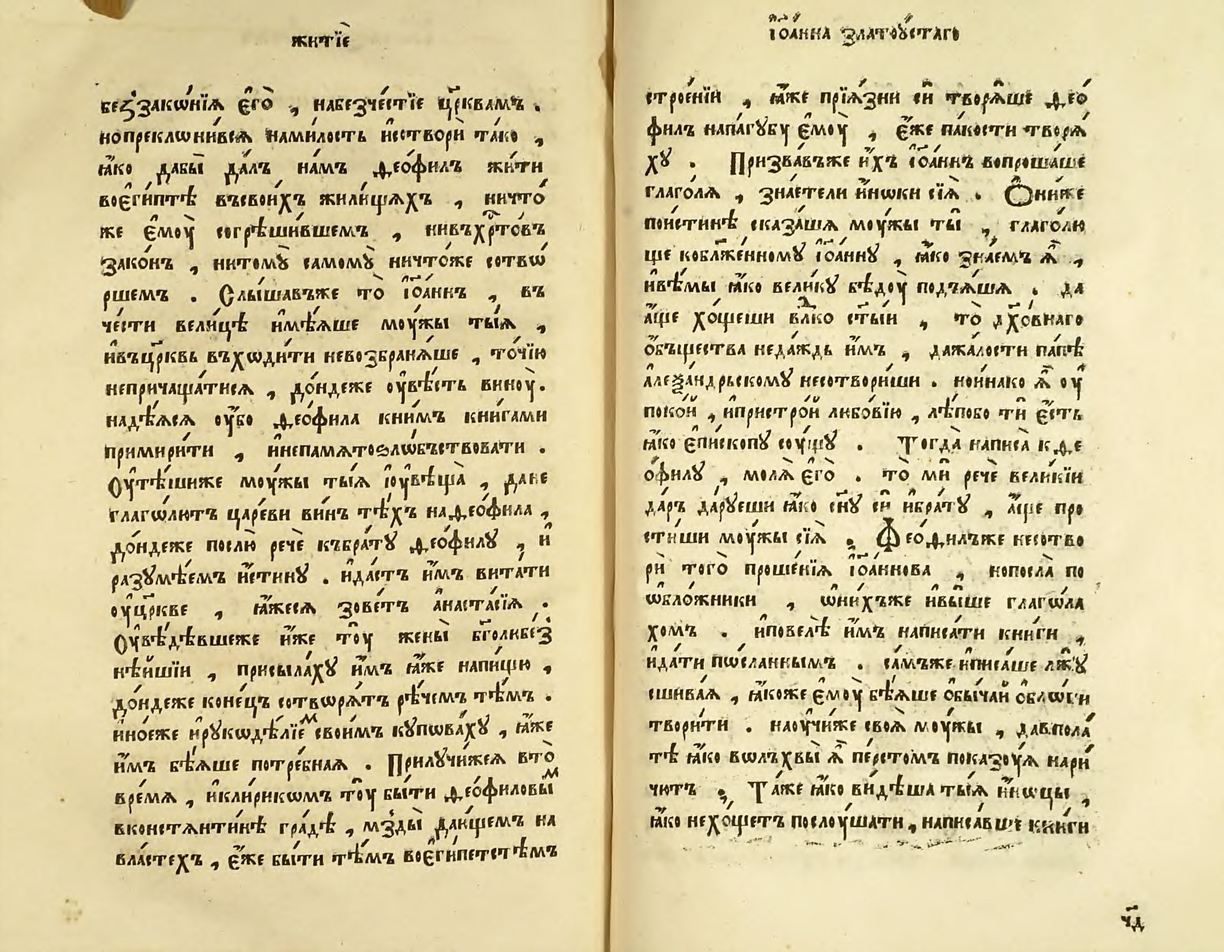 житїѐ
беꙁ̾зако́нїѧ є҆гѡ̀ , набезче́стїе цр҃квамъ .
нопреклѡни́всѧ нами́лость и҆сотворѝ та́ко ,
ꙗ҆́ко дабы̀ да́лъ на́мъ ѳео́филъ жи́ти
воє҆ги́птѣ въсвои́хъ жили́щѧхъ , ничто́
же є҆моу̀ согрѣши́вшемъ , нивъхрⷭ҇то́въ
зако́нъ , нитомꙋ̀ самомꙋ̀ ничто́же сотвѡ́
ршемъ . Слы́шавъже то̀ і҆ѡа́ннъ , въ
че́сти вели́цѣ и҆мѣ́ѧше моу́жы ты́ѧ ,
и҆въцр҃квь въхѡди́ти невозбранѧ́ше , то́чїю
непричаща́тисѧ , до́ндеже оу҆вѣ́сть виноу̀ .
надѣ́ѧсѧ оу҆́бо ѳео́фила кни́мъ кни́гами
примири́ти , и҆непамѧтоꙁло́бъствовати .
Оу҆тѣ́шиже моу́жы ты́ѧ і҆оувѣща̀ , да́не
глаго́лютъ царе́ви ви́нъ тѣ́хъ наѳео́фила ,
до́ндеже послю̀ речѐ къбра́тꙋ ѳео́филꙋ , и҆
разꙋмѣ́емъ и҆́стинꙋ . и҆да́стъ и҆́мъ вита́ти
оу҆цр҃кве , ꙗ҆́жесѧ зове́тъ а҆наста́сїѧ .
Оу҆вѣ́дѣвшеже и҆́же тоу̀ жены̀ бг҃олюбеꙁ̾
нѣ́йшїи , присыла́хꙋ и҆́мъ ꙗ҆́же напи́щю ,
до́ндеже коне́цъ сотворѧ́тъ рѣ́чемъ тѣ́мъ .
и҆но́еже и҆рꙋкодѣ́лїеⷨ свои́мъ кꙋпова́хꙋ , ꙗ҆́же
и҆́мъ бѣ́ѧше потре́бнаѧ . Прилꙋчи́жесѧ вто̀
вре́мѧ , и҆кли́рикѡмъ тоу̀ бы́ти ѳео́филовыⷨ
вконстѧнти́нѣ гра́дѣ , мзды̀ даю́щемъ на
вла́стехъ , є҆́же бы́ти тѣ́мъ воє҆ги́петстѣмъ
і҆ѡа́нна златоꙋ́стаго
строе́нїи , ꙗ҆́же прїѧ́зни сѝ творѧ́ше ѳео́
филъ напа́гꙋбꙋ є҆моу̀ , є҆́же па́кости творѧ́
хꙋ . Призва́въже и҆́хъ і҆ѡа́ннъ вопроша́ше
глаго́лѧ , зна́етели и҆́ноки сїѧ̀ . Ѻ҆ни́же
пои́стинѣ сказа́шѧ моу́жы ты̀ , глаго́лю
ще кобл҃же́нномꙋ і҆ѡа́ннꙋ , ꙗ҆́ко зна́емъ ѧ҆̀ ,
и҆вѣ́мы ꙗ҆́ко вели́кꙋ бѣдоу̀ подъѧ́шѧ . да
а҆́ще хо́щеши влⷣко ст҃ы́и , то̀ дх҃о́внаго
о҆́бъщества неда́ждь и҆́мъ , дажа́лости па́пѣ
а҆леѯа́ндрьскомꙋ несотвори́ши . нои҆на́ко ѧ҆̀ оу҆
поко́й , и҆пристро́й любо́вїю , лѣ́побо тѝ є҆́сть
ꙗ҆́ко є҆пи́скопꙋ соу́щꙋ . Тогда̀ написа̀ кѳе
о́филꙋ , молѧ̀ є҆го̀ . то́ ми речѐ вели́кїи
да́ръ дарꙋ́еши ꙗ҆́ко сн҃ꙋ сѝ и҆бра́тꙋ , а҆́ще про
сти́ши моу́жы сїѧ̀ . Ѳео́филъже несотво
рѝ того̀ проше́нїѧ і҆ѡа́ннова , нопосла̀ по
ѡ҆бло́жники , ѡ҆ни́хъже и҆вы́ше глаго́ла
хомъ . и҆повелѣ̀ и҆́мъ написа́ти кни́ги ,
и҆да́ти по́сланнымъ . са́мъже и҆писа́ше лжꙋ̀
сшива́ѧ , ꙗ҆́коже є҆моу̀ бѣ́ѧше о҆бы́чай о҆бло́ги
твори́ти . наоучи́же своѧ̀ моу́жы , давпола́
тѣ ꙗ҆́ко волъхвы̀ ѧ҆̀ пе́рстомъ показоу́ѧ нари́
чютъ . Та́же ꙗ҆́ко ви́дѣша ты́ѧ и҆́ноцы ,
ꙗ҆́ко нехо́щетъ послоу́шати , написа́вше кни́ги
ч҃д